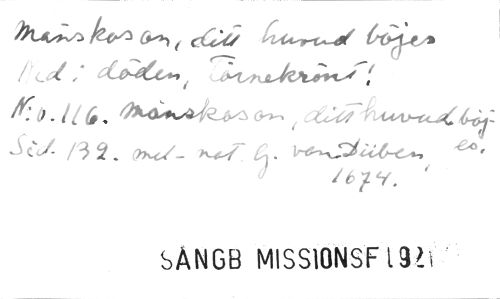 Mänskoson, ditt huvud böjes
Ned i döden, Törnekrönt!
N:o. 116. Mänskoson, ditt huvud böj-
es.
Sid. 132. mel- not. G. von Düben,
1674.
SÅNGB MISSIONSF 192